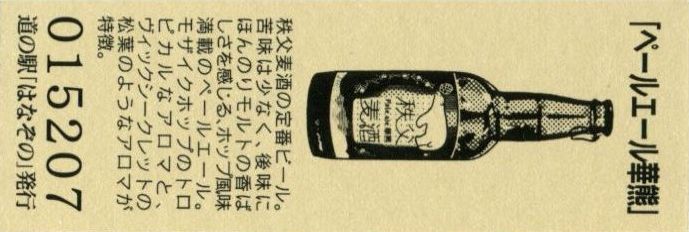 「ペールエール華熊」
秩父
麦酒
秩父麦酒の定番ビール。
苦味は少なく、後味に
ほんのりモルトの香ば
しさを感じる、ホップ風味
満載のペールエール。
モザイクホップのトロ
ピカルなアロマと、
ヴィックシークレットの
松葉のようなアロマが
特徴。
015207
道の駅「はなぞの」発行